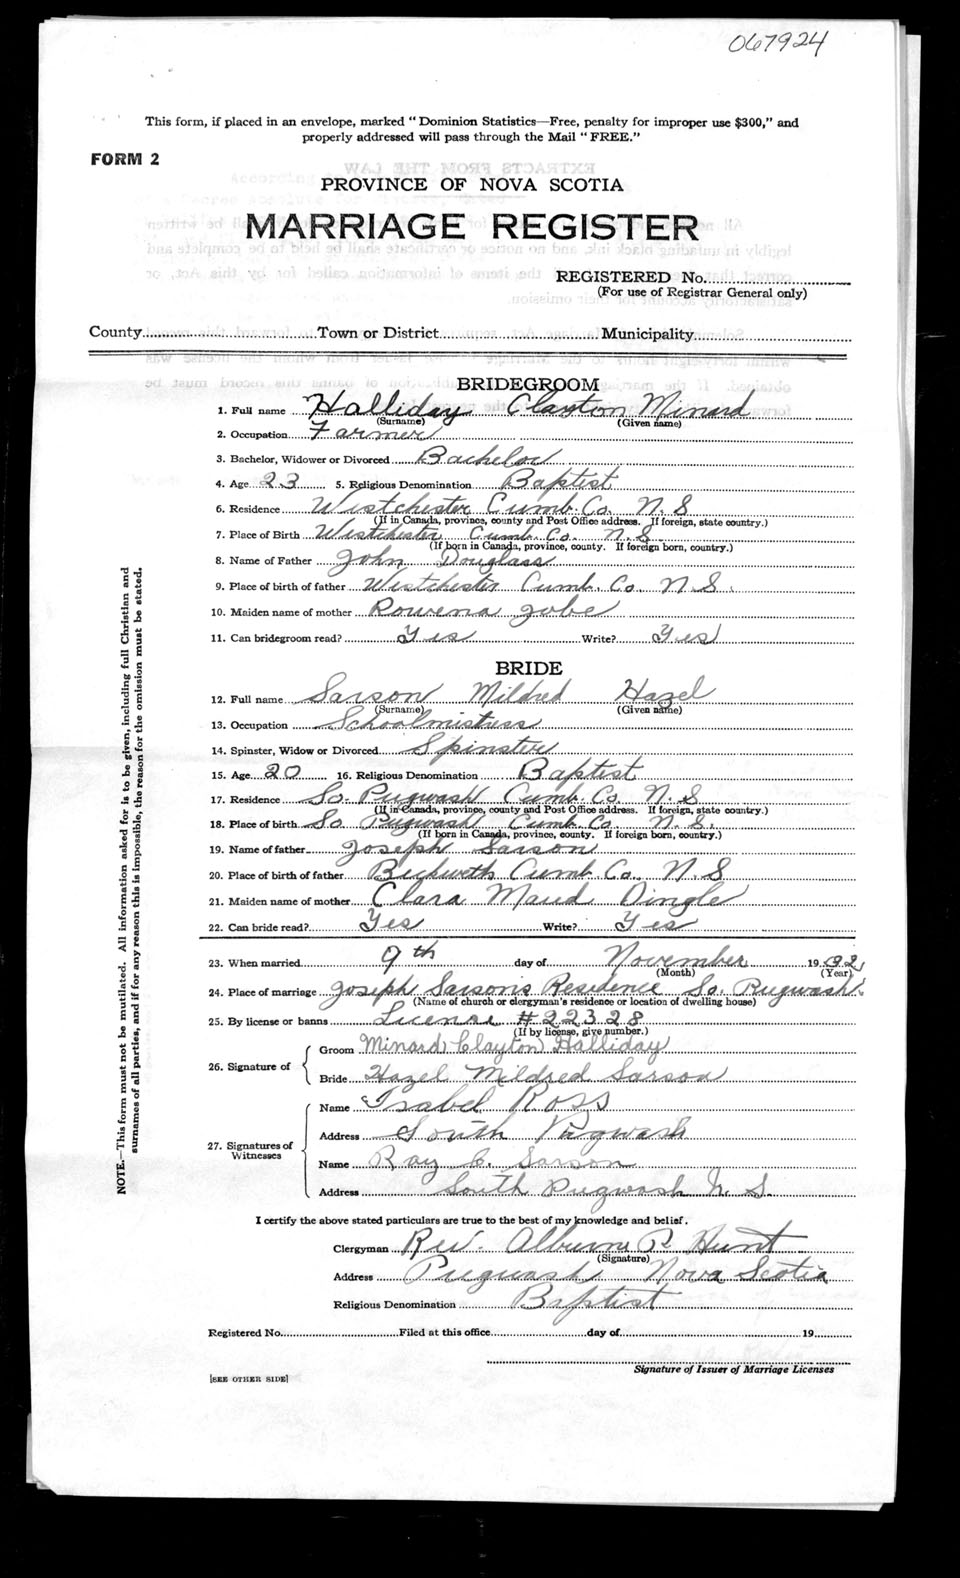 067924
This form, if placed in an envelope, marked "Dominion Statistics—Free, penalty for improper use $300," and
properly addressed will pass through the Mail "FREE."
FORM 2
PROVINCE OF NOVA SCOTIA
MARRIAGE REGISTER
REGISTERED No.
(For use of Registrar General only)
County Town or District Municipality
BRIDEGROOM
1. Full name Halliday Clayton Minard
(Surname) (Given name)
2. Occupation Farmer
3. Bachelor, Widower or Divorced Bachelor
4. Age 23 5. Religious Denomination Baptist
6. Residence Westchester Cumb. Co. N. S
(If in Canada, province, county and Post Office address. If foreign, state country.)
7. Place of Birth Westchester Cumb. Co. N. S.
(If born in Canada, province, county. If foreign born, country.)
8. Name of Father John Douglass
9. Place of birth of father Westchester Cumb. Co. N. S.
10. Maiden name of mother Rowena Jobe
11. Can bridegroom read? Yes Write? Yes
BRIDE
12. Full name Sarson Mildred Hazel
(Surname) (Given name)
13. Occupation Schoolmistress
14. Spinster, Widow or Divorced Spinster
15. Age 20 16. Religious Denomination Baptist
17. Residence So. Pugwash Cumb. Co. N. S
(If in Canada, province, county and Post Office address. If foreign, state country.)
18. Place of birth So Pugwash Cumb Co. N. S.
(If born in Canada, province, county. If foreign born, country.)
19. Name of father Joseph Sarson
20. Place of birth of father Cumb Co. N. S
21. Maiden name of mother Clara Maud Dingle
22. Can bride read? Yes Write? Yes
23. When married 9th day of November 1932
(Month) (Year)
24. Place of marriage Joseph Sarson's Residence So. Pugwash
(Name of church or clergyman's residence or location of dwelling house)
25. By license or banns License #22328
(If by license, give number.)
26. Signature of
Groom Minard Clayton Halliday
Bride Hazel Mildred Sarson
27. Signatures of Witnesses
Name Isabel Ross
Address South Pugwash
Name Ray C. Sarson
Address South Pugwash N. S.
I certify the above stated particulars are true to the best of my knowledge and belief.
Clergyman Rev. Alburne P. Hunt
(Signature)
Address Pugwash Nova Scotia
Religious Denomination Baptist
Registered No. Filed at this office day of 19
Signature of Issuer of Marriage Licenses
[SEE OTHER SIDE]
NOTE.—This form must not be mutilated. All information asked for is to be given, including full Christian and
surnames of all parties, and if for any reason this is impossible, the reason for the omission must be stated.